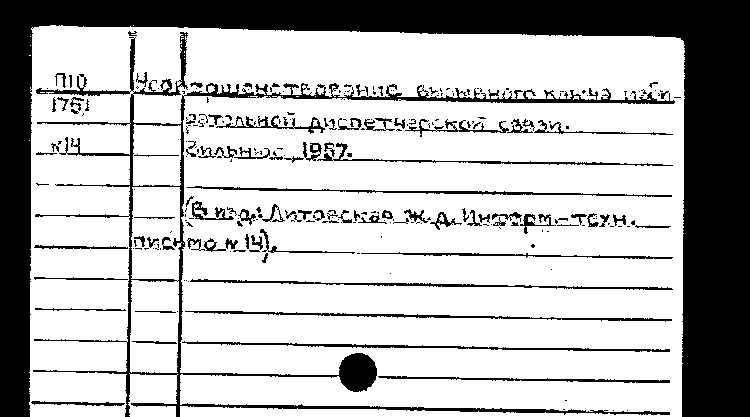 П10 Усовершенствование вызывного ключа изби-
1751 рательной диспетчерской связи.
к14 Вильнюс, 1957.
(В изд.: Литовская ж.д. Информ.-техн.
письмо № 14).